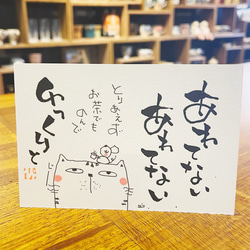 あわてない
あわてない
とりあえず
お茶でも
のんで
ゆっくりと